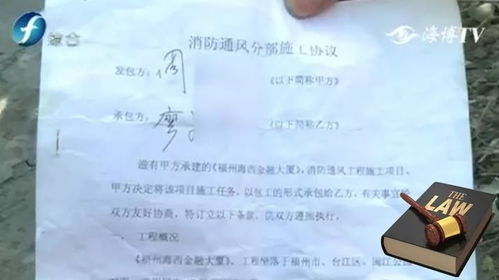 综合
海博TV
消防通风分部施工协议
发包方：周
《以下简称甲方》
承包方：廖
《以下简称乙方》
滋有甲方承建的《福州海西金融大厦》，消防通风工程施工项目，
甲方决定将该项目施工任务，以包工的形式承包给乙方，有关事宜经
双方友好协商，特订立以下条款，供双方遵照执行。
一、工程概况
《福州海西金融大厦》，工程坐落于福州市、台江区、闽江公
THE
LAW